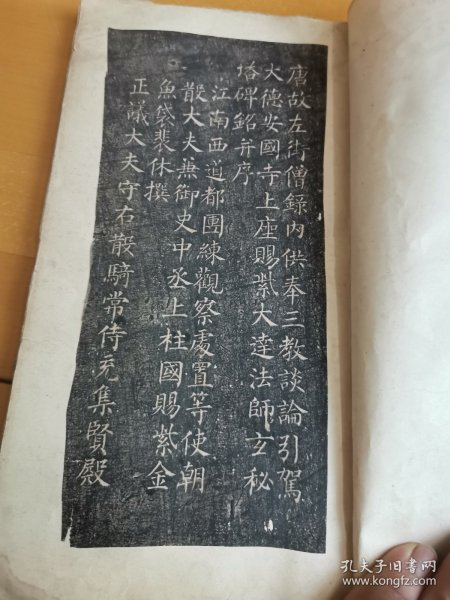 唐故左街僧錄內供奉三教談論引駕
大德安國寺上座賜紫大達法師玄秘
塔碑銘并序
江南西道都團練觀察處置等使朝
散大夫兼御史中丞上柱國賜紫金
魚袋裴休撰
正議大夫守右散騎常侍充集賢殿
孔夫子旧书网
www.kongfz.com